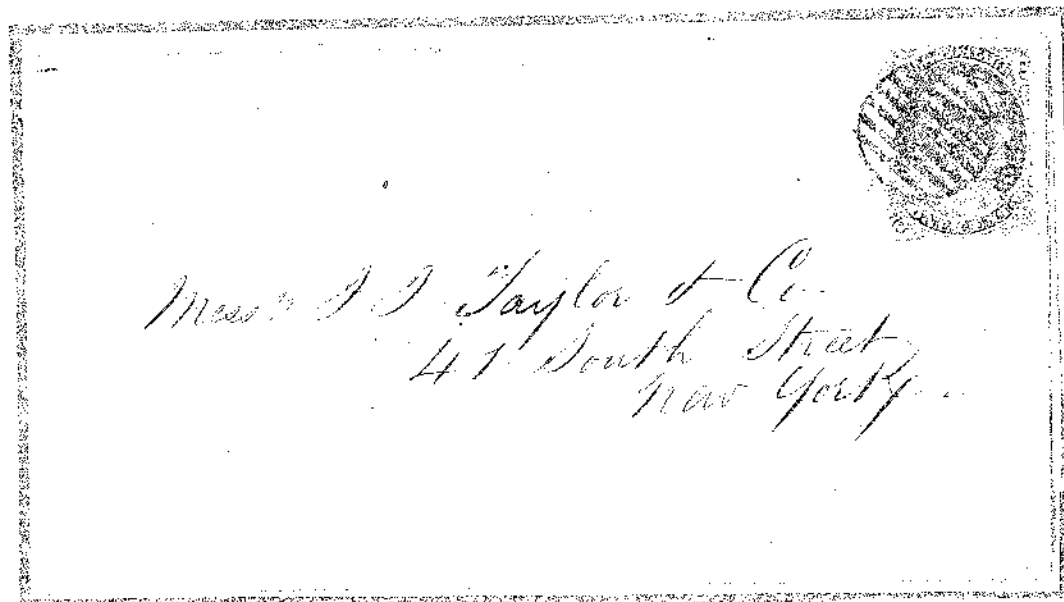 Mess<sup>rs</sup> J J Taylor & Co
41 South Street
New York